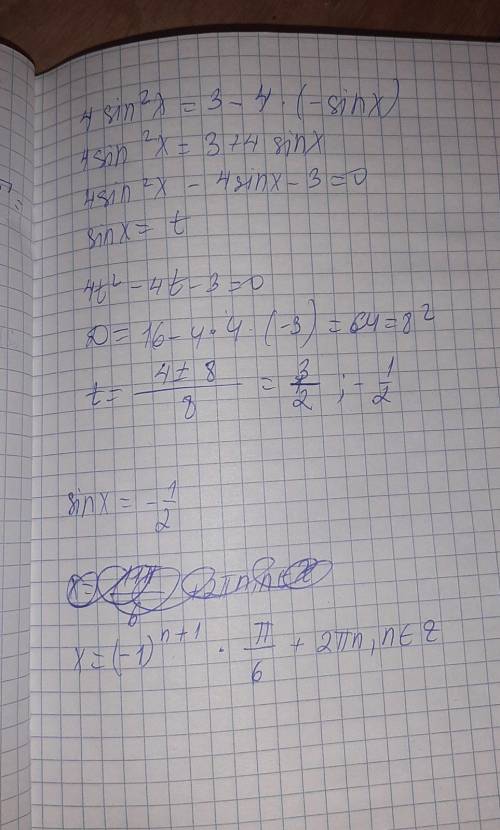 4 sin²x = 3 - 4 · (-sinx)
4 sin²x = 3 + 4 sinx
4 sin²x - 4 sinx - 3 = 0
sinx = t
4t² - 4t - 3 = 0
D = 16 - 4 · 4 · (-3) = 64 = 8²
t = (4 ± 8)/8 = 3/2 ; -1/2
sinx = -1/2
x = (-1)ⁿ⁺¹ · π/6 + 2πn, n ∈ Z